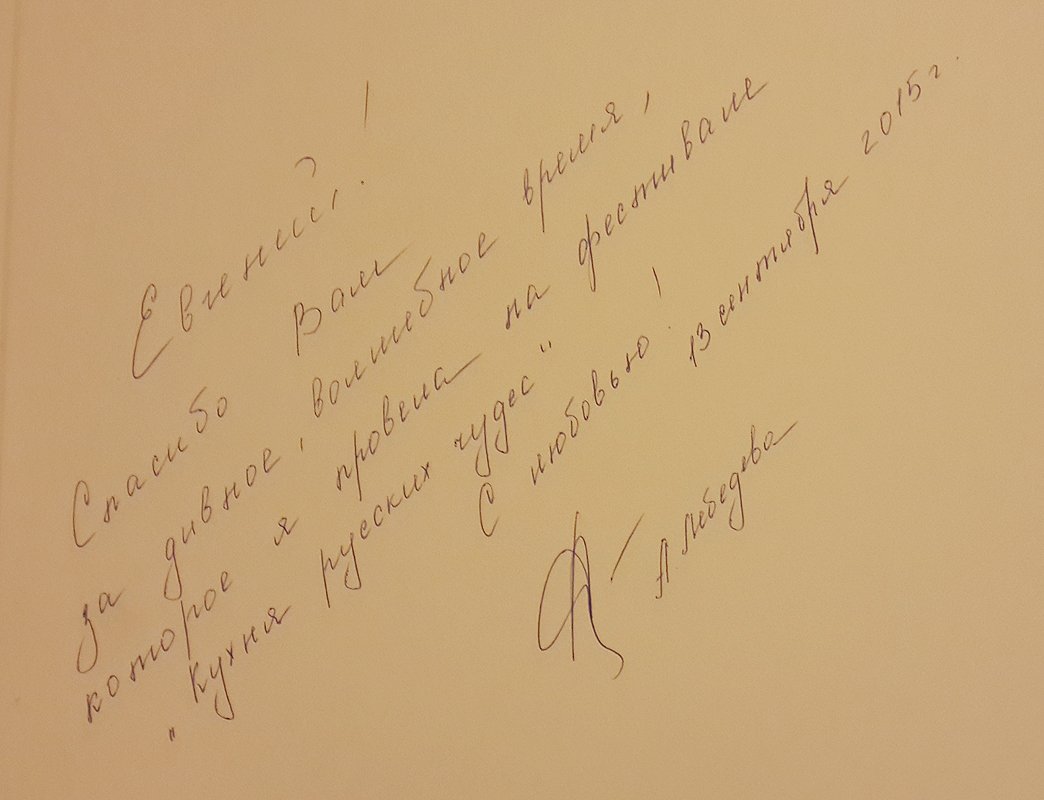 Евгений, !
Спасибо Вам
за дивное, волшебное время,
которое я провела на фестивале
„Кухня русских чудес"
С любовью!
13 сентября 2015 г.
А. Лебедева